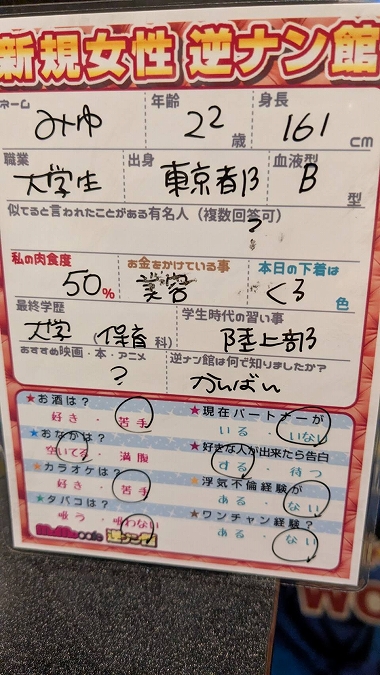 新規女性 逆ナン館
ネーム 年齢 身長
みゆ 22歳 161cm
職業 出身 血液型
大学生 東京都 B型
似てると言われたことがある有名人（複数回答可）
?
私の肉食度 お金をかけている事 本日の下着は
50% 美容 くろ色
最終学歴 学生時代の習い事
大学（保育科） 陸上部
おすすめ映画・本・アニメ 逆ナン館は何で知りましたか？
? かんばん
★お酒は？ ★現在パートナーが
好き・苦手 いる・いない
★おなかは？ ★好きな人が出来たら告白
空いてる・満腹 する・待つ
★カラオケは？ ★浮気不倫経験が
好き・苦手 ある・ない
★タバコは？ ★ワンチャン経験？
吸う・吸わない ある・ない
cafe 逆ナン館
WO